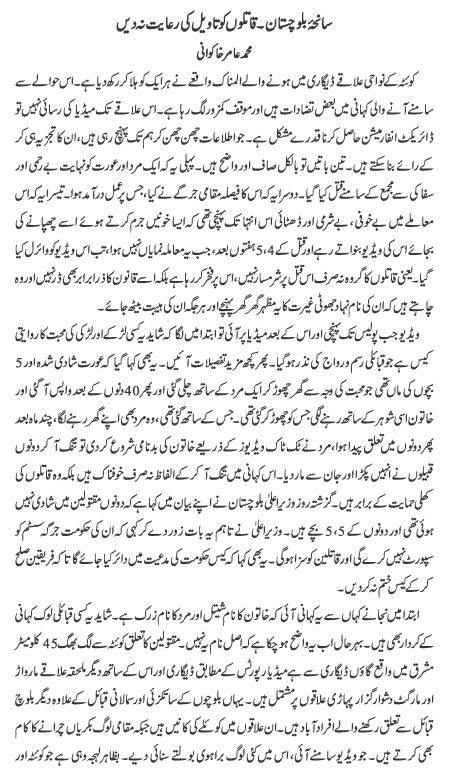 سانحہ بلوچستان۔ قاتلوں کو تاویل کی رعایت نہ دیں
محمد عامر خاکوانی
کوئٹہ کے نواحی علاقے ڈیگاری میں ہونے والے المناک واقعے نے ہر ایک کو ہلا کر رکھ دیا ہے۔ اس حوالے سے
سامنے آنے والی کہانی میں بعض تضادات ہیں اور موقف کمزور لگ رہا ہے۔ اس علاقے تک میڈیا کی رسائی نہیں تو
ڈائریکٹ انفارمیشن حاصل کرنا قدرے مشکل ہے۔ جو اطلاعات چھن چھن کر ہم تک پہنچ رہی ہیں، ان کا تجزیہ ہی کر
کے رائے بنا سکتے ہیں۔ تین باتیں تو بالکل صاف اور واضح ہیں۔ پہلی یہ کہ ایک مرد اور عورت کو نہایت بے رحمی اور
سفاکی سے مجمع کے سامنے قتل کیا گیا۔ دوسرا یہ کہ اس کا فیصلہ مقامی جرگے نے کیا، جس پر عمل درآمد ہوا۔ تیسرا یہ کہ اس
معاملے میں بے خوفی، بے شرمی اور ڈھٹائی اس انتہا تک پہنچی تھی کہ ایسا خونیں جرم کرتے ہوئے اسے چھپانے کی
بجائے اس کی ویڈیو بنواتے رہے اور قتل کے 5،4 ہفتوں بعد، جب یہ معاملہ نمایاں نہیں ہوا، تب اس ویڈیو کو وائرل کیا
گیا۔ یعنی قاتلوں کا گروہ نہ صرف اس قتل پر شرمسار نہیں، اس پر فخر کر رہا ہے بلکہ اسے قانون کا ذرا برابر بھی ڈر نہیں اور وہ
چاہتے ہیں کہ ان کی نام نہاد جھوٹی غیرت کا یہ مظہر گھر گھر پہنچے اور ہر جگہ ان کی ہیبت بیٹھ جائے۔
ویڈیو جب پولیس تک پہنچی اور اس کے بعد میڈیا پر آئی تو ابتدا میں لگا کہ شاید یہ کسی لڑکے اور لڑکی کی محبت کا روایتی
کیس ہے جو قبائلی رسم و رواج کی نذر ہو گیا۔ پھر کچھ مزید تفصیلات آئیں۔ یہ بھی کہا گیا کہ عورت شادی شدہ اور 5
بچوں کی ماں تھی جو محبت کی وجہ سے گھر چھوڑ کر ایک مرد کے ساتھ چلی گئی اور پھر 40 دنوں کے بعد واپس آ گئی اور
خاتون اسی شوہر کے ساتھ رہنے لگی جس کو چھوڑ کر گئی تھی۔ جس کے ساتھ گئی تھی، وہ مرد بھی اپنے گھر رہنے لگا، چند ماہ بعد
پھر دونوں میں تعلق پیدا ہوا، مرد نے ٹک ٹاک ویڈیوز کے ذریعے خاتون کی بدنامی شروع کر دی تو تنگ آ کر دونوں
قبیلوں نے انہیں پکڑا اور جان سے مار دیا۔ اس کہانی میں تنگ آ کر کے الفاظ نہ صرف خوفناک ہیں بلکہ وہ قاتلوں کی
کھلی حمایت کے برابر ہیں۔ گزشتہ روز وزیر اعلیٰ بلوچستان نے اپنے بیان میں کہا ہے کہ دونوں مقتولین میں شادی نہیں
ہوئی تھی اور دونوں کے 5،5 بچے ہیں۔ وزیر اعلیٰ نے تاہم یہ بات زور دے کر کہی کہ ان کی حکومت جرگہ سسٹم کو
سپورٹ نہیں کرے گی اور قاتلین کو سزا ہو گی۔ یہ بھی کہا کہ کیس حکومت کی مدعیت میں دائر کیا جائے گا تاکہ فریقین صلح
کر کے کیس ختم نہ کر دیں۔
ابتدا میں نجانے کہاں سے یہ کہانی آئی کہ خاتون کا نام شیتل اور مرد کا نام زرک ہے۔ شاید یہ کسی قبائلی لوک کہانی
کے کردار بھی ہیں۔ بہرحال اب یہ واضح ہو چکا ہے کہ اصل نام یہ نہیں۔ مقتولین کا تعلق کوئٹہ سے لگ بھگ 45 کلومیٹر
مشرق میں واقع گاؤں ڈیگاری سے ہے میڈیا رپورٹس کے مطابق ڈیگاری اور اس کے ساتھ دیگر ملحقہ علاقے مارواڑ
اور مارگٹ دشوار گزار پہاڑی علاقوں پر مشتمل ہیں۔ یہاں بلوچوں کے ساتکزئی اور سمالانی قبائل کے علاوہ دیگر بلوچ
قبائل سے تعلق رکھنے والے افراد آباد ہیں۔ ان علاقوں میں کوئلے کی کانیں ہیں جبکہ مقامی لوگ بکریاں چرانے کا کام
بھی کرتے ہیں۔ جو ویڈیو سامنے آئی، اس میں کئی لوگ براہوی بولتے سنائی دیے۔ بظاہر لہجہ وہی ہے جو کوئٹہ اور